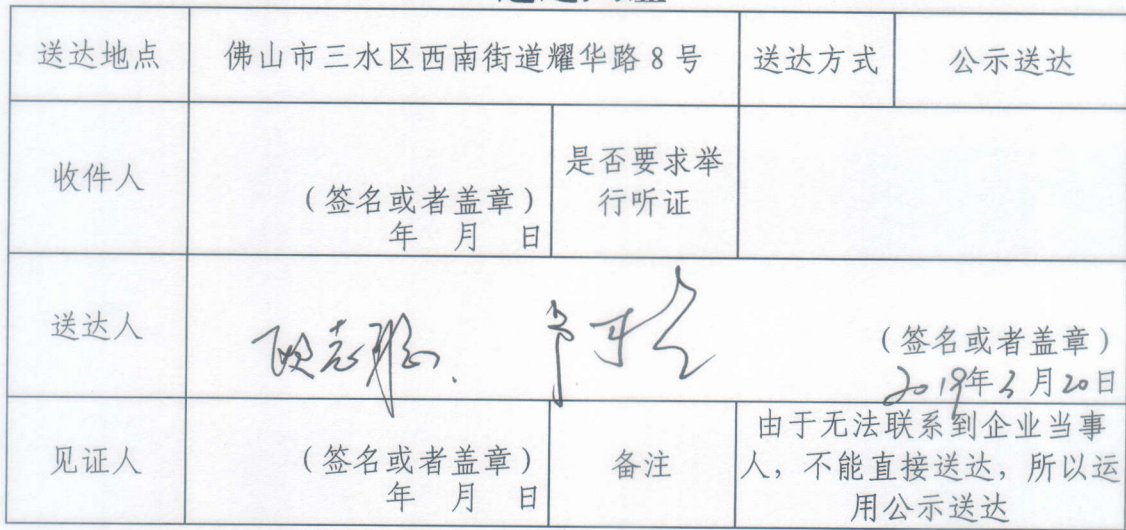 送达地点 佛山市三水区西南街道耀华路8号 送达方式 公示送达
收件人 (签名或者盖章)
年 月 日
是否要求举
行听证
送达人
(签名或者盖章)
2019年 月20日
见证人 (签名或者盖章)
年 月 日
备注
由于无法联系到企业当事
人，不能直接送达，所以运
用公示送达